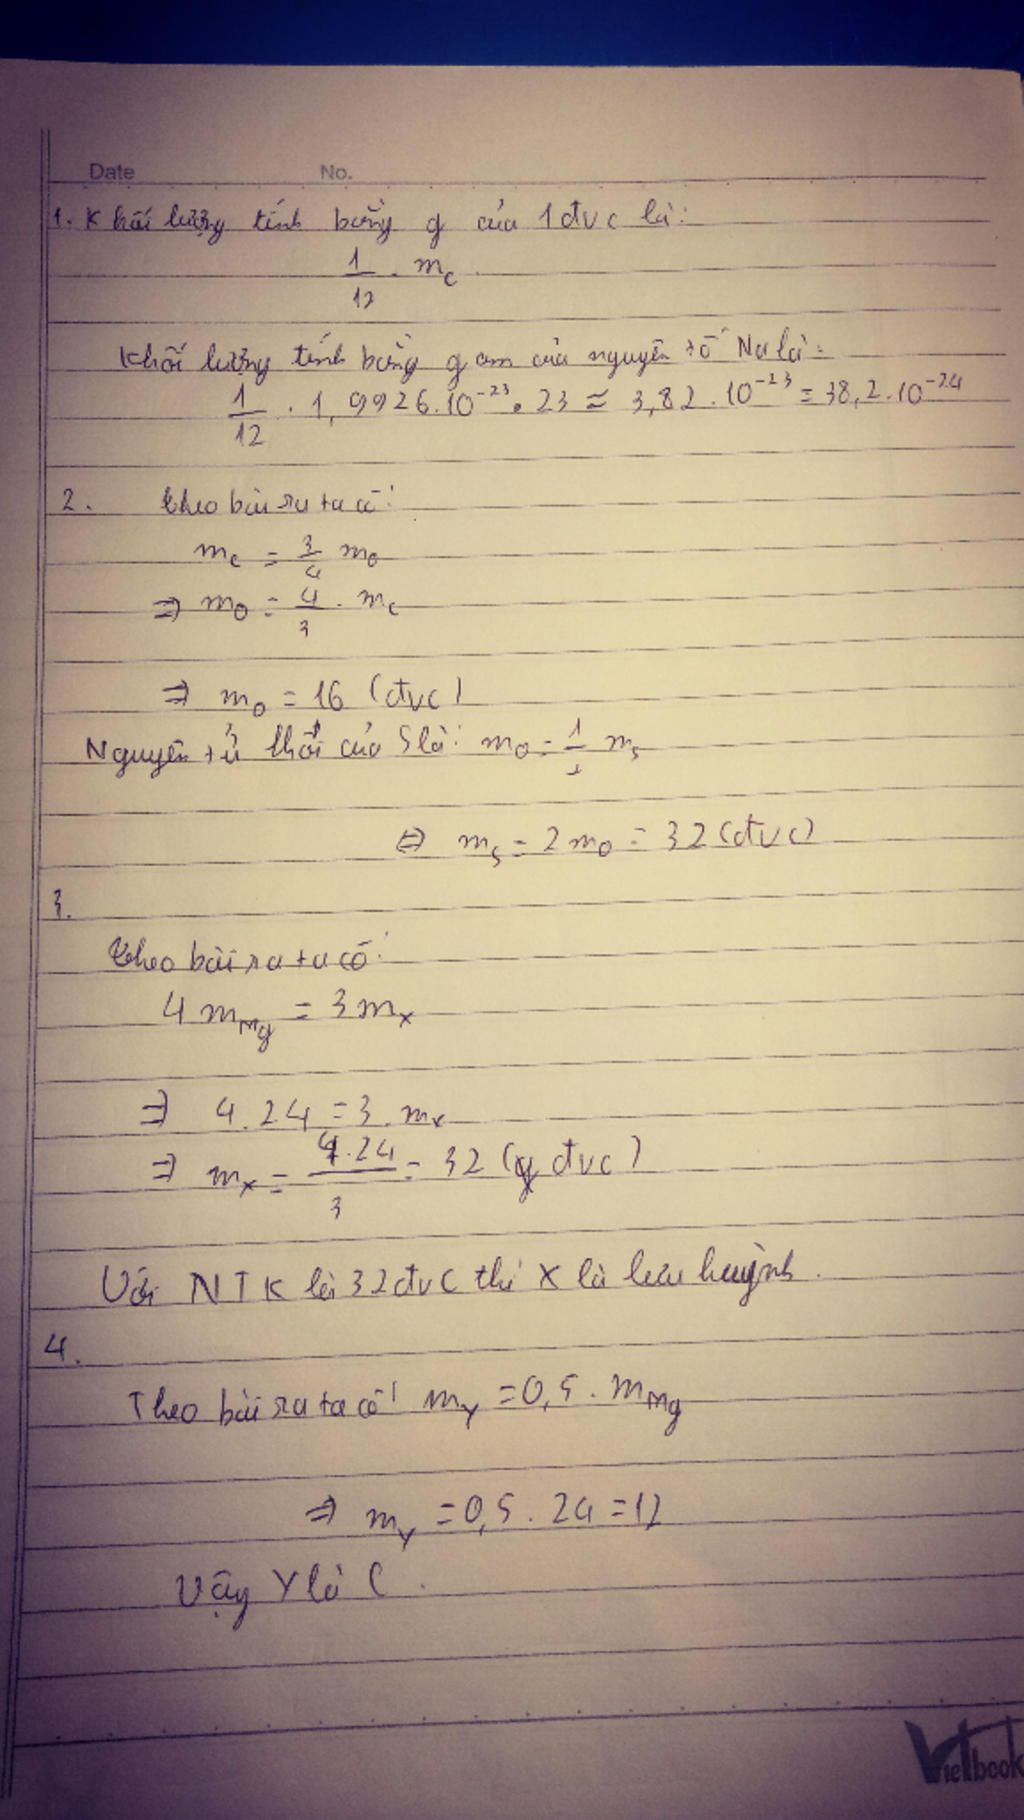 Date No.
1. Khối lượng tính bằng g của 1đvc là:
1/12 . mc
Khối lượng tính bằng gam của nguyên tố Na là:
1/12 . 1,9926.10⁻²³ . 23 ≈ 3,82.10⁻²³ = 38,2.10⁻²⁴
2. theo bài ra ta có:
mc = 3/4 mo
⇒ mo = 4/3 . mc
⇒ mo = 16 (đvc)
Nguyên tử khối của S là: mo = 1/2 ms
⇔ ms = 2mo = 32 (đvc)
3.
Theo bài ra ta có:
4 mMg = 3 mx
⇒ 4.24 = 3.mx
⇒ mx = 4.24/3 = 32 (đvc)
Với NTK là 32đvc thì X là lưu huỳnh.
4.
Theo bài ra ta có: mY = 0,5 . mMg
⇒ mY = 0,5 . 24 = 12
Vậy Y là C.
Vietbook